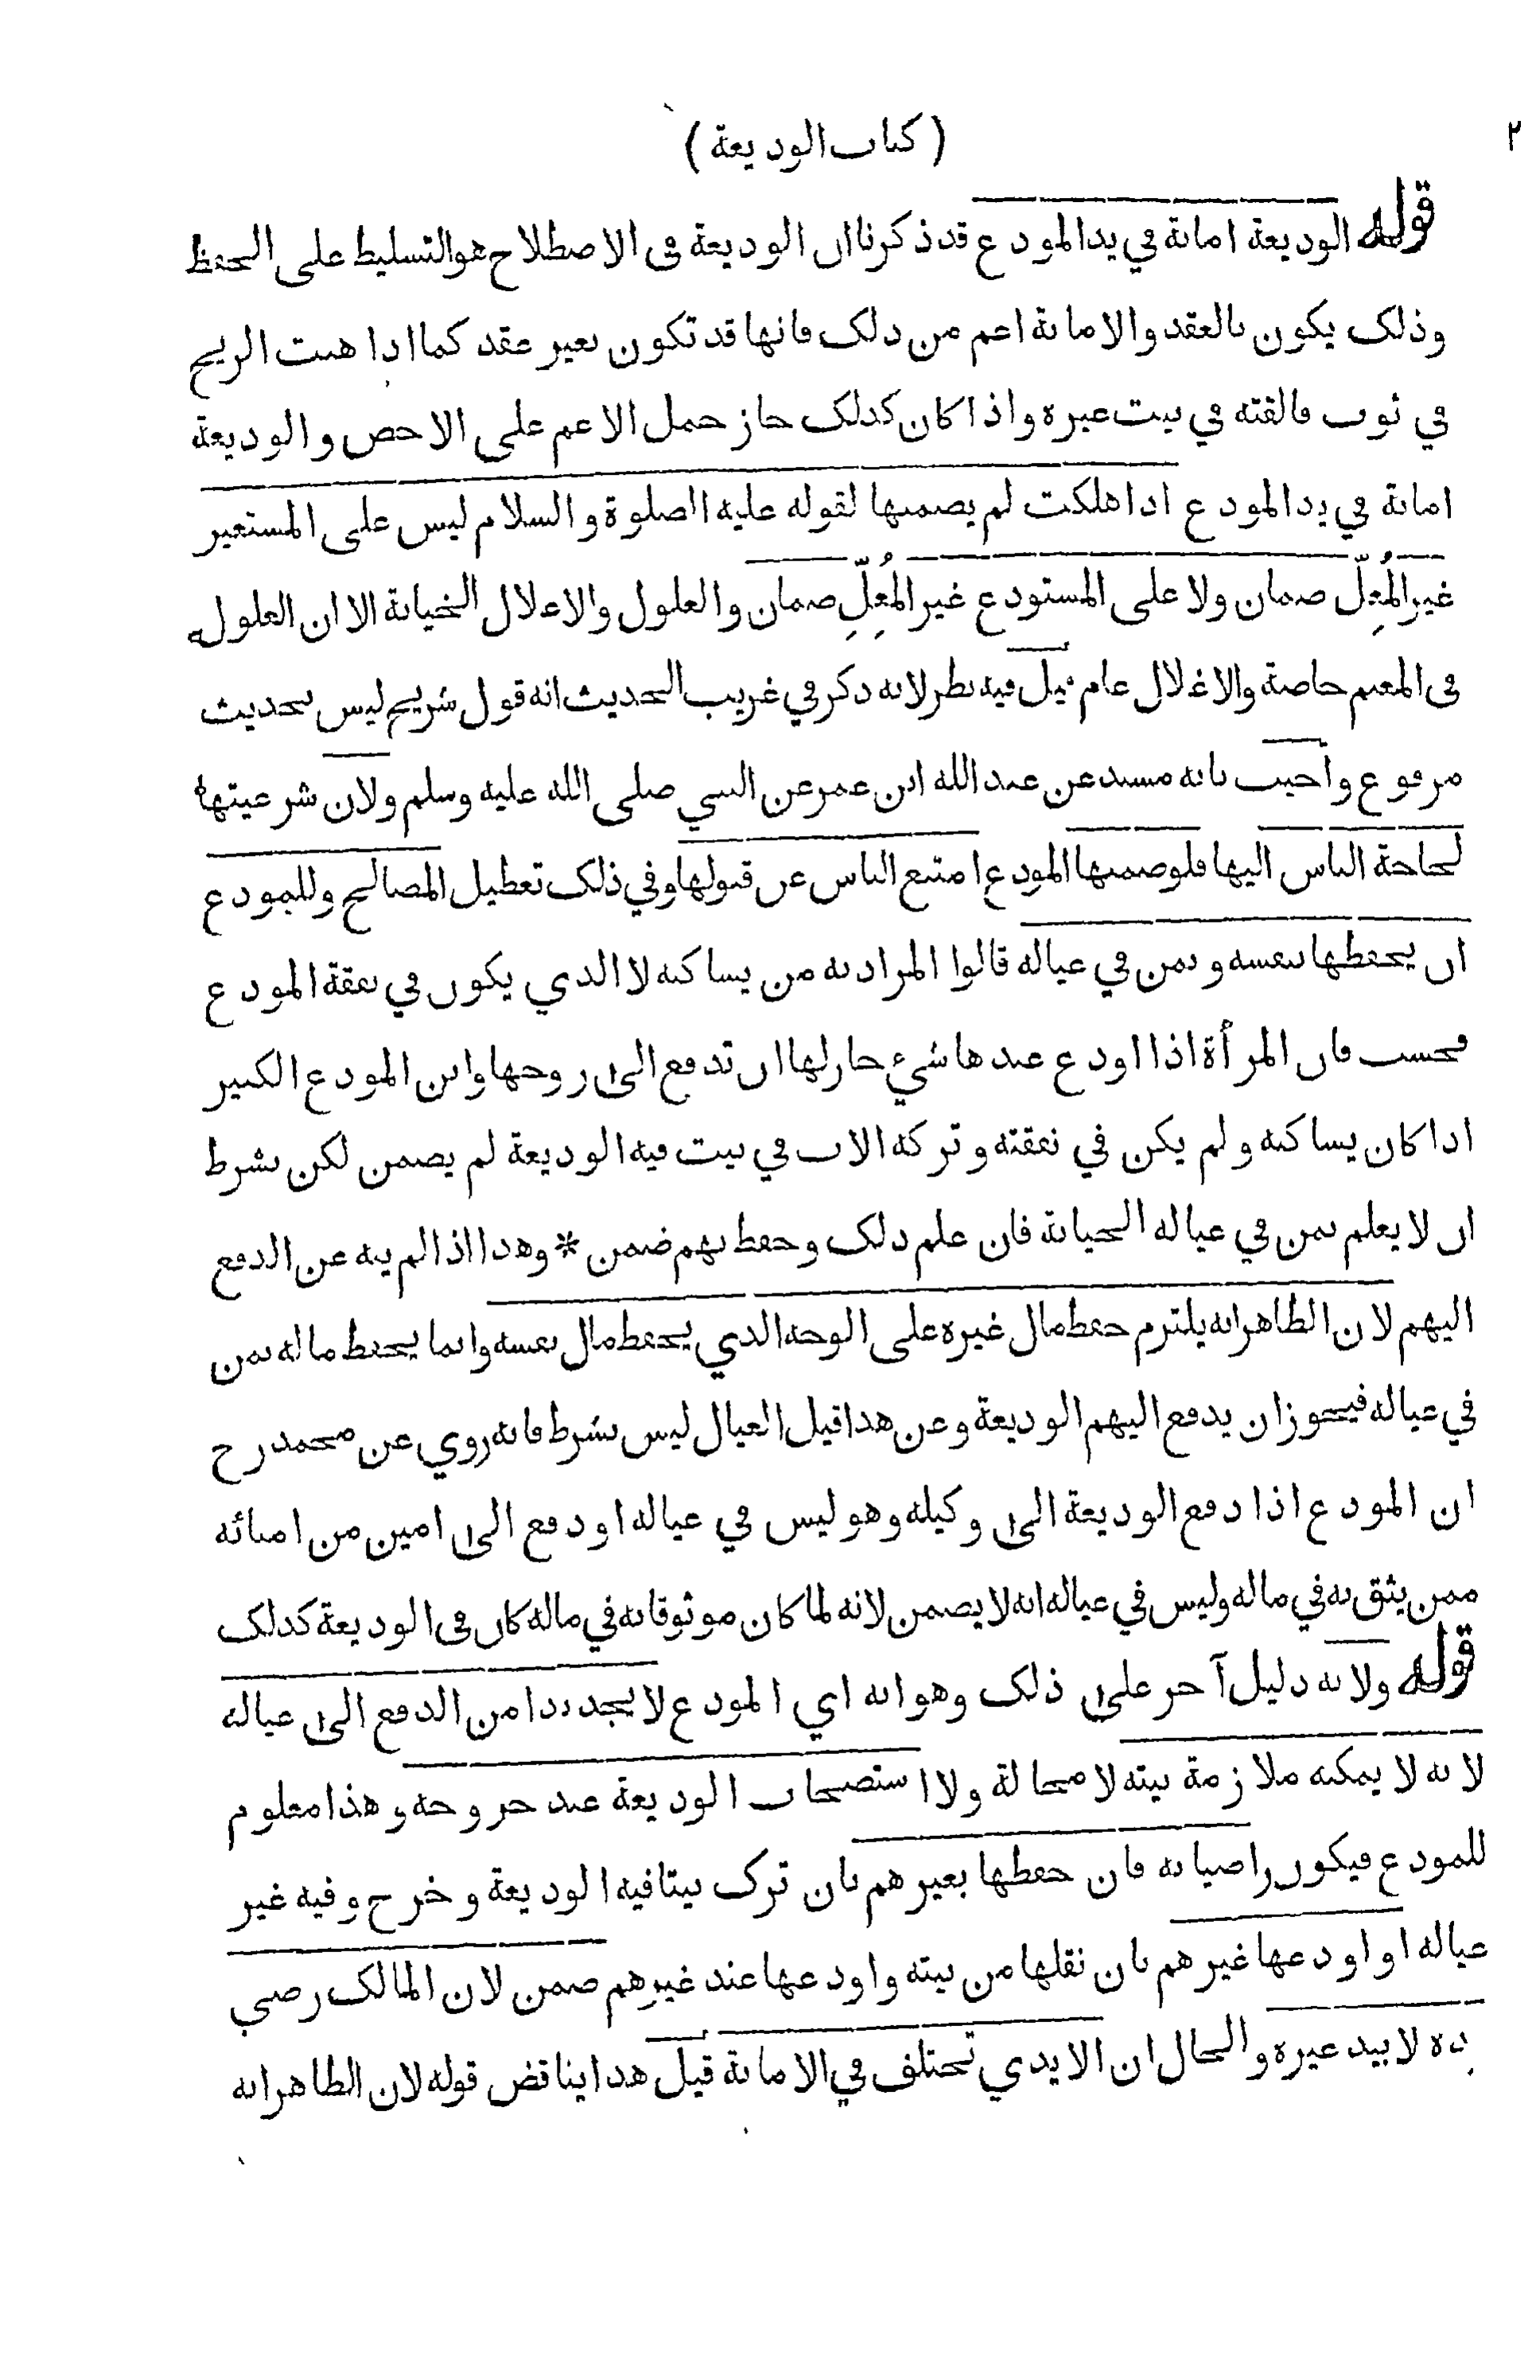 ٢
( كتاب الوديعة )
قوله الوديعة امانة في يد المودع قد ذكرنا ان الوديعة في الاصطلاح هو التسليط على الحفظ
وذلك يكون بالعقد والامانة اعم من ذلك فانها قد تكون بغير عقد كما اذا هبت الريح
في ثوب فالقته في بيت غيره واذا كان كذلك جاز حمل الاعم على الاخص والوديعة
امانة في يد المودع اذا هلكت لم يضمنها لقوله عليه الصلوة والسلام ليس على المستعير
غير المُغِلّ ضمان ولا على المستودع غير المُغِلِّ ضمان والغلول والاغلال الخيانة الا ان الغلول
في المغنم خاصة والاغلال عام قيل فيه نظر لانه ذكر في غريب الحديث انه قول شريح ليس بحديث
مرفوع وأجيب بانه مسند عن عبد الله ابن عمر عن النبي صلى الله عليه وسلم ولان شرعيتها
لحاجة الناس اليها فلو ضمنها المودع امتنع الناس عن قبولها وفي ذلك تعطيل المصالح وللمودع
ان يحفظها بنفسه وبمن في عياله قالوا المراد به من يساكنه لا الذي يكون في نفقة المودع
فحسب فان المرأة اذا اودع عندها شيء جاز لها ان تدفع الى زوجها وابن المودع الكبير
اذا كان يساكنه ولم يكن في نفقته وتركه الاب في بيت فيه الوديعة لم يضمن لكن بشرط
ان لا يعلم بمن في عياله الخيانة فان علم ذلك وحفظ بهم ضمن * وهذا اذا لم ينه عن الدفع
اليهم لان الظاهر انه يلتزم حفظ مال غيره على الوجه الذي يحفظ مال نفسه وانما يحفظ ماله بمن
في عياله فيجوز ان يدفع اليهم الوديعة وعن هذا قيل العيال ليس بشرط فانه روي عن محمد رح
ان المودع اذا دفع الوديعة الى وكيله وهو ليس في عياله او دفع الى امين من امنائه
ممن يثق به في ماله وليس في عياله انه لا يضمن لانه لما كان موثوقا به في ماله كان في الوديعة كذلك
قوله ولانه دليل آخر على ذلك وهو انه اي المودع لا يجد بدا من الدفع الى عياله
لانه لا يمكنه ملازمة بيته لا محالة ولا استصحاب الوديعة عند خروجه وهذا معلوم
للمودع فيكون راضيا به فان حفظها بغيرهم بان ترك بيتا فيه الوديعة وخرج وفيه غير
عياله او اودعها غيرهم بان نقلها من بيته واودعها عند غيرهم ضمن لان المالك رضي
بيده لا بيد غيره والحال ان الايدي تختلف في الامانة قيل هذا يناقض قوله لان الظاهر انه